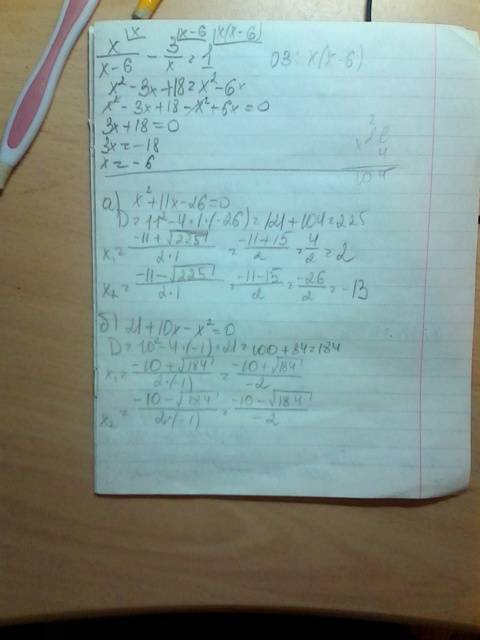 x/(x-6) |x - 3/x |x-6 = 1 |x(x-6) ОЗ: x(x-6)
x² - 3x + 18 = x² - 6x
x² - 3x + 18 - x² + 6x = 0
3x + 18 = 0
3x = -18
x = -6
а) x² + 11x - 26 = 0
D = 11² - 4·1·(-26) = 121 + 104 = 225
x₁ = (-11 + √225)/(2·1) = (-11 + 15)/2 = 4/2 = 2
x₂ = (-11 - √225)/(2·1) = (-11 - 15)/2 = -26/2 = -13
б) 21 + 10x - x² = 0
D = 10² - 4·(-1)·21 = 100 + 84 = 184
x₁ = (-10 + √184)/(2·(-1)) = (-10 + √184)/(-2)
x₂ = (-10 - √184)/(2·(-1)) = (-10 - √184)/(-2)